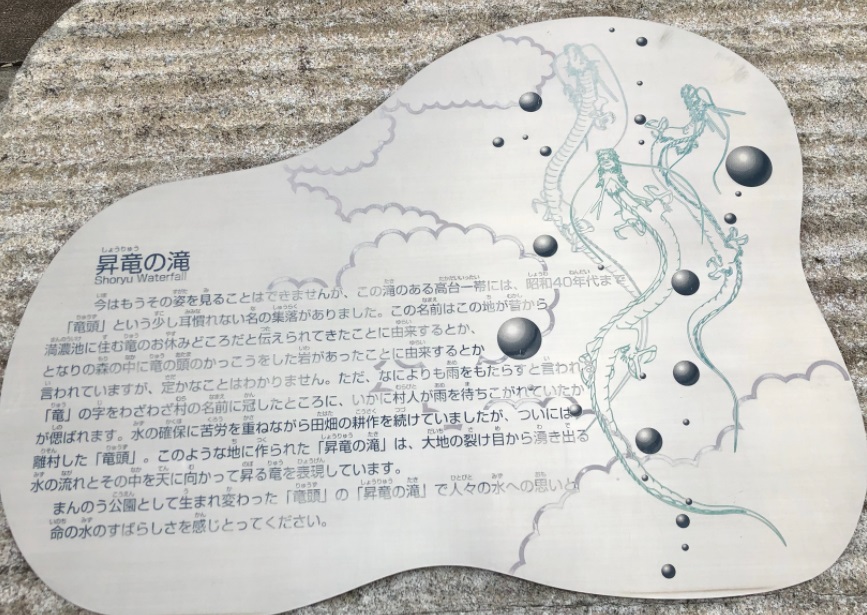 昇竜の滝
Shoryu Waterfall
今はもうその姿を見ることはできませんが、この滝のある高台一帯には、昭和40年代まで
「竜頭」という少し耳慣れない名の集落がありました。この名前はこの地が昔から
満濃池に住む竜のお休みどころだと伝えられてきたことに由来するとか、
となりの森の中に竜の頭のかっこうをした岩があったことに由来するとか
言われていますが、定かなことはわかりません。ただ、なによりも雨をもたらすと言われる
「竜」の字をわざわざ村の名前に冠したところに、いかに村人が雨を待ちこがれていたか
が偲ばれます。水の確保に苦労を重ねながら田畑の耕作を続けていましたが、ついには
離村した「竜頭」。このような地に作られた「昇竜の滝」は、大地の裂け目から湧き出る
水の流れとその中を天に向かって昇る竜を表現しています。
まんのう公園として生まれ変わった「竜頭」の「昇竜の滝」で人々の水への思いと
命の水のすばらしさを感じとってください。